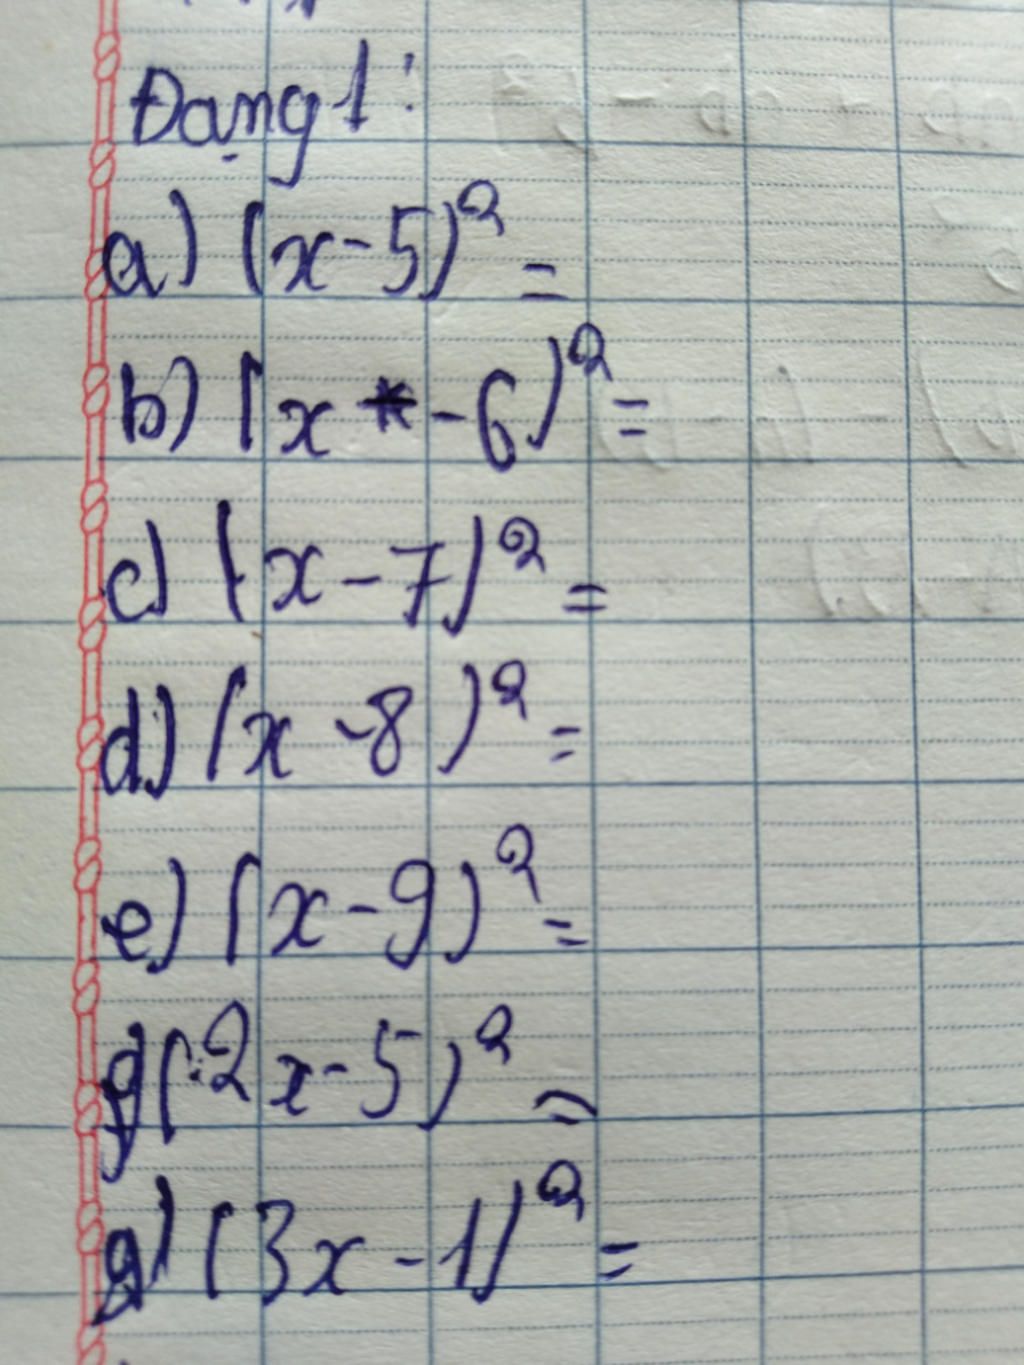 Dạng 1:
a) (x-5)² =
b) (x -6)² =
c) (x-7)² =
d) (x-8)² =
e) (x-9)² =
g) (2x-5)² =
g) (3x-1)² =